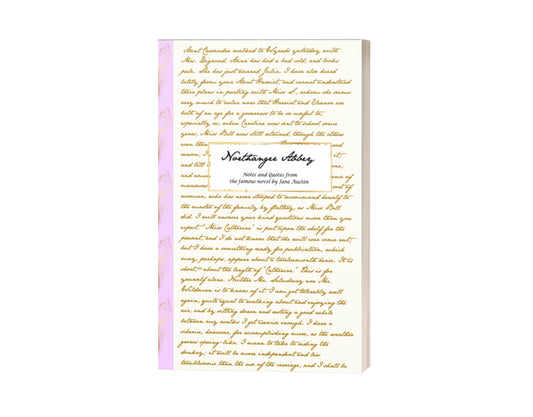 Aunt Cassandra walked to Wyards yesterday with
Mrs. Digweed. Anna has had a bad cold, and looks
pale. She has just weaned Julia. I have also heard
lately from your Aunt Harriot, and cannot understand
their plans in parting with Miss S., whom she seems
very much to value now that Harriot and Eleanor are
both of an age for a governess to be so useful to,
especially as, when Caroline was sent to school some
years, Miss Bell was still retained, though the others
even
Northanger Abbey
Notes and Quotes from
the famous novel by Jane Austen
women, who has never stooped to recommend herself to
the master of the family by flattery, as Miss Bell
did. I will answer your kind questions more than you
expect. 'Miss Catherine' is put upon the shelf for the
present, and I do not know that she will ever come out;
but I have a something ready for publication, which
may, perhaps, appear about a twelvemonth hence. It is
short — about the length of 'Catherine.' This is for
yourself alone. Neither Mr. Salusbury nor Mr.
Wildman is to know of it. I am got tolerably well
again, quite equal to walking about and enjoying the
air, and by sitting down and resting a good while
between my walks I get exercise enough. I have a
scheme, however, for accomplishing more, as the weather
grows spring-like. I mean to take to riding the
donkey; it will be more independent and less
troublesome than the use of the carriage, and I shall be